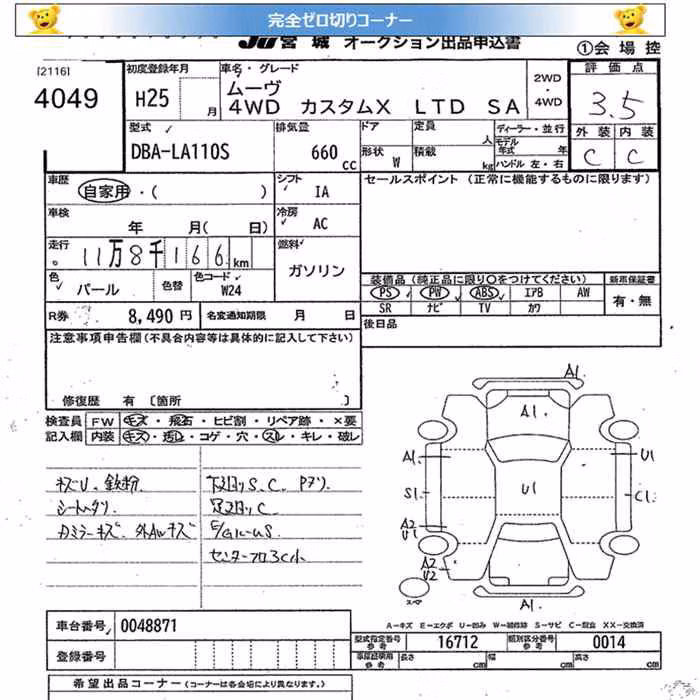 完全ゼロ切りコーナー
JU宮城 オークション出品申込書
①会場控
[2116]
4049
初度登録年月
H25 月
車名・グレード
ムーヴ
4WD カスタムX LTD SA
2WD
・
4WD
評価点
3.5
外装 内装
C C
型式
DBA-LA110S
排気量
660 cc
ドア
形状 W
定員 人
積載 kg
ディーラー・並行
モデル年式 年
ハンドル 左・右
車歴
自家用・( )
シフト
IA
セールスポイント (正常に機能するものに限ります)
車検
年 月( 日)
冷房
AC
走行
11万8千166km
燃料
ガソリン
色
パール
色替
色コード
W24
装備品 (純正品に限り○をつけてください)
新車保証書
PS PW ABS エアB AW
SR ナビ TV カワ
有・無
R券 8,490円
名変通知期限 月 日
後日品
注意事項申告欄(不具合内容等は具体的に記入して下さい)
修復歴 有 〔箇所 〕
検査員 FW キズ・飛石・ヒビ割・リペア跡・×要
記入欄 内装 キズ・汚レ・コゲ・穴・スレ・キレ・破レ
キズU、鉄粉
下廻りS.C.
足廻りC
外AWキズ
A1.
A1.
A1.
U1
S1
U1
C1
A2
U1
A2
U2
スペア
A1.
A-キズ E-エクボ U-凹み W-補修跡 S-サビ C-腐食 XX-交換済
車台番号 0048871
型式指定番号 参考 16712
類別区分番号 参考 0014
登録番号
長さ cm 幅 cm 高さ cm
希望出品コーナー (コーナーは各会場により異なります。)